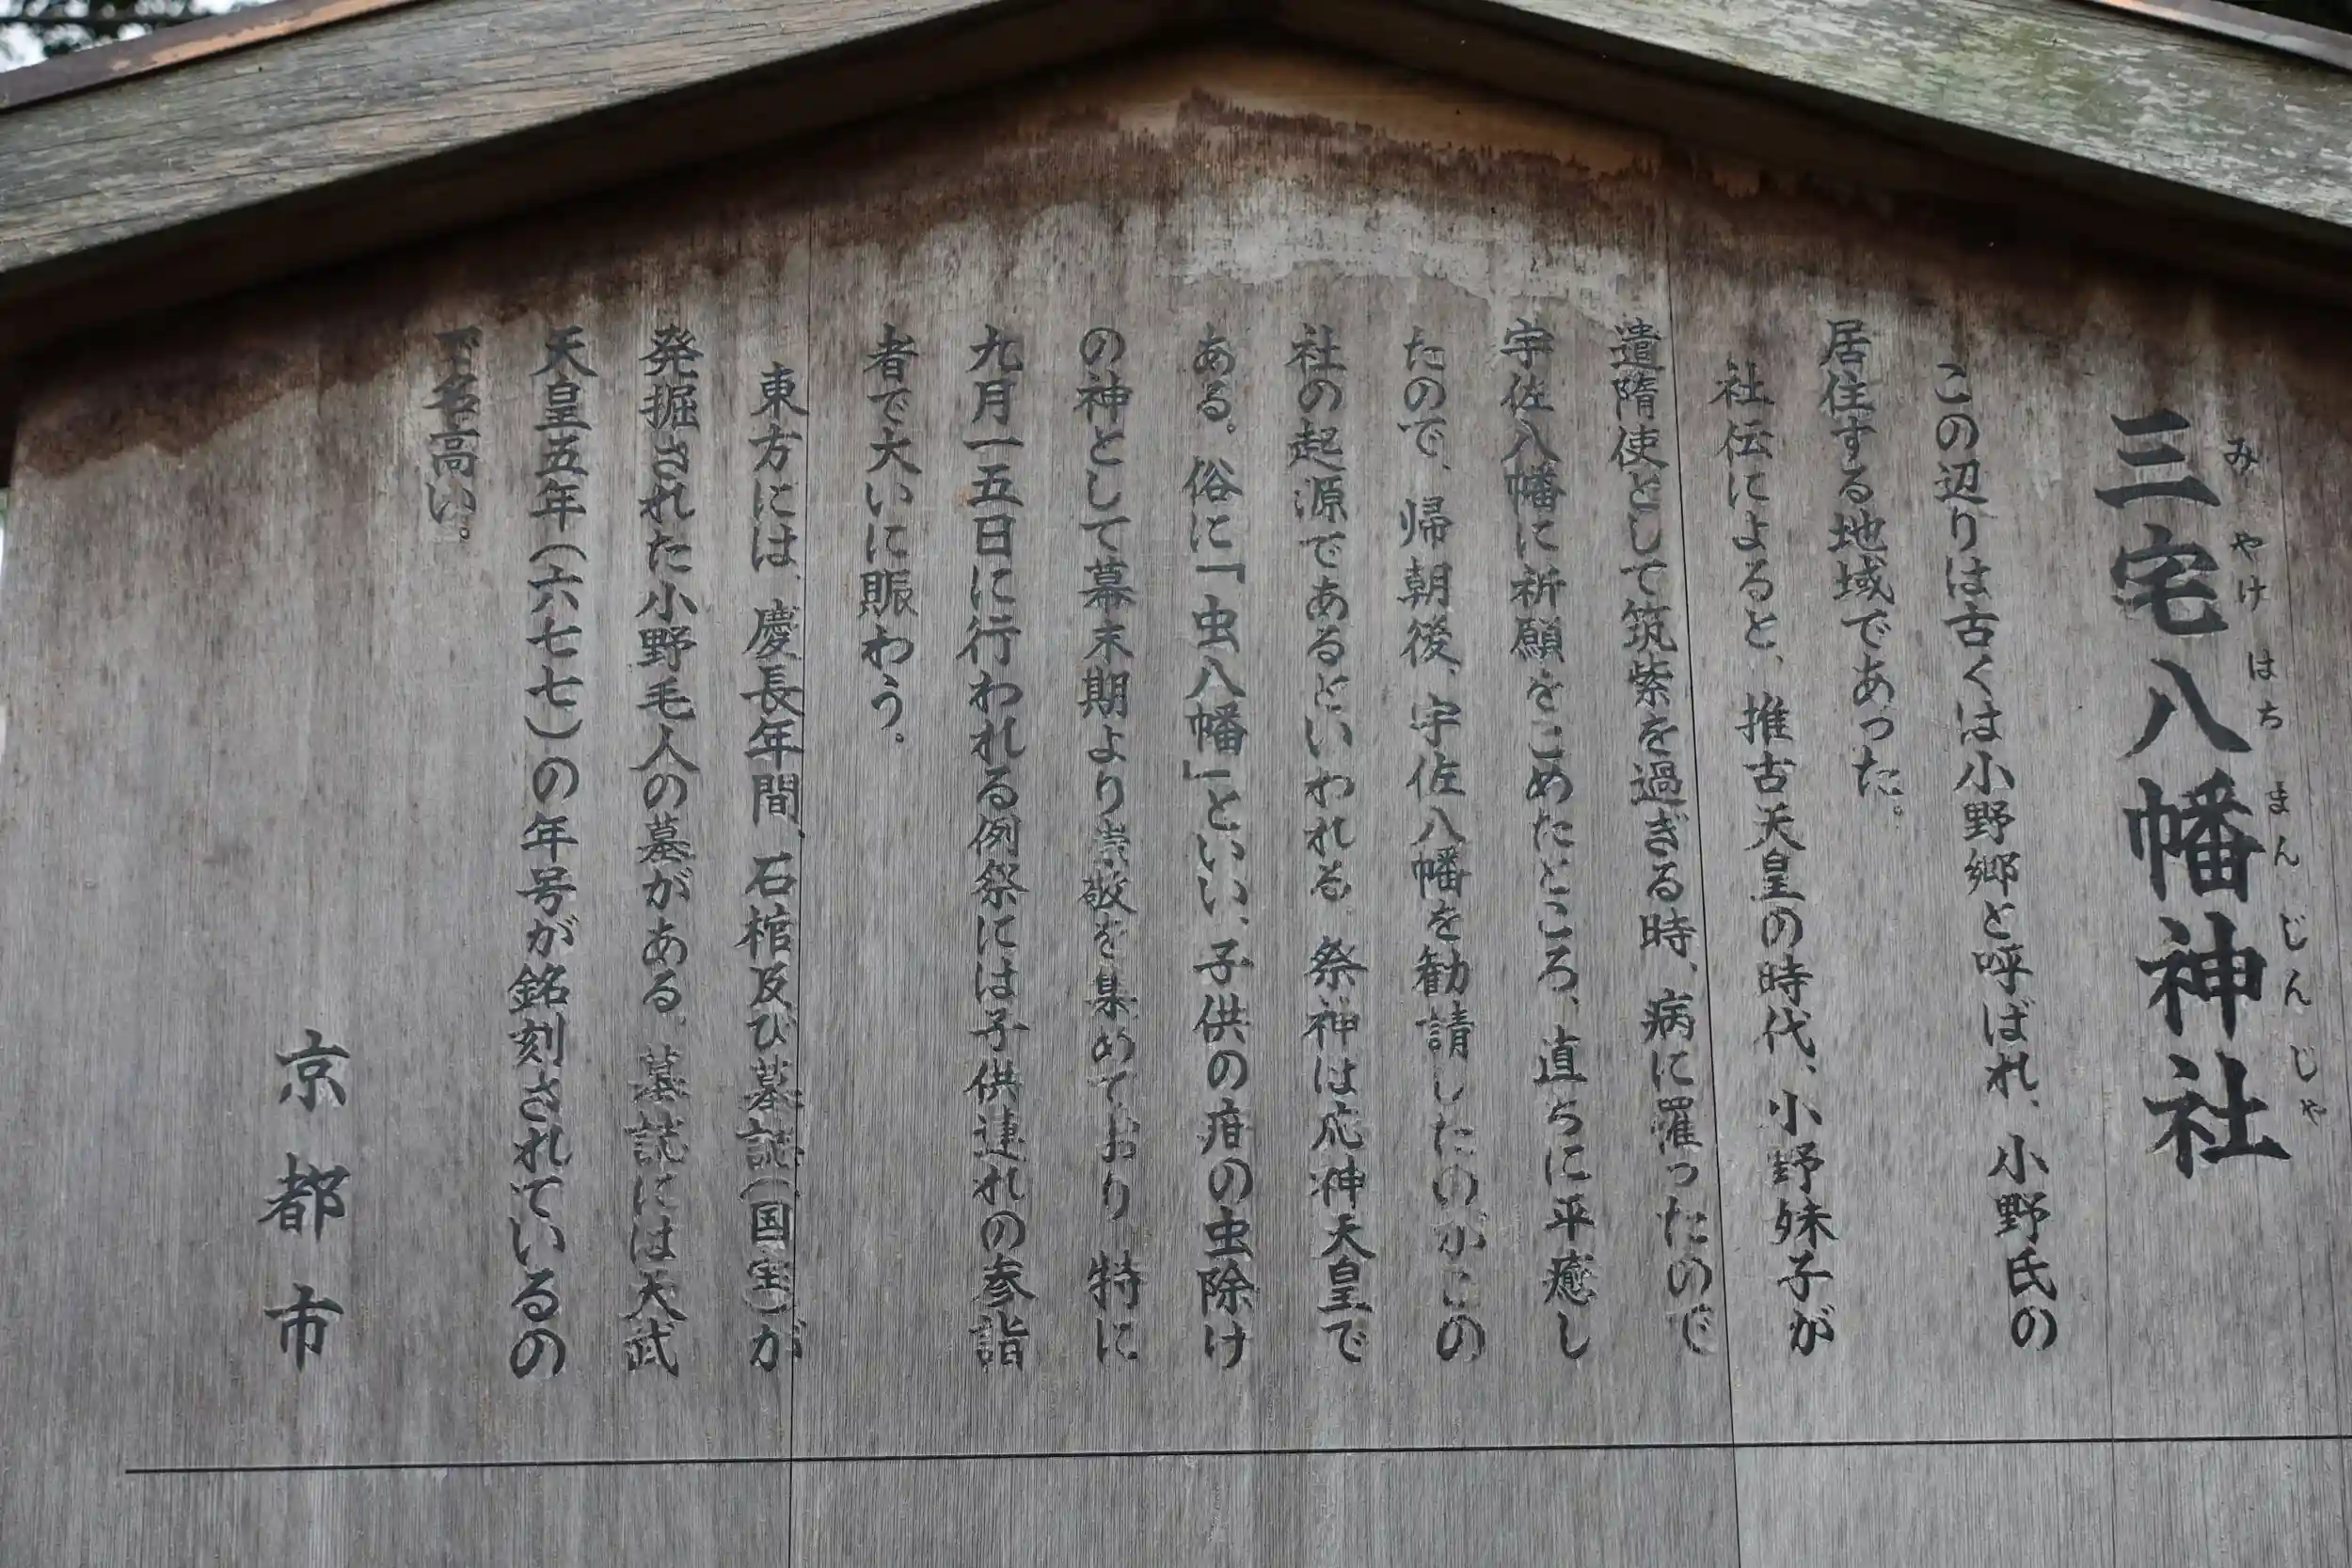 三宅八幡神社
みやけはちまんじんじゃ
この辺りは古くは小野郷と呼ばれ、小野氏の
居住する地域であった。
社伝によると、推古天皇の時代、小野妹子が
遣隋使として筑紫を過ぎる時、病に罹ったので
宇佐八幡に祈願をこめたところ、直ちに平癒し
たので、帰朝後、宇佐八幡を勧請したのがこの
社の起源であるといわれる。祭神は応神天皇で
ある。俗に「虫八幡」といい、子供の疳の虫除け
の神として幕末期より崇敬を集めており、特に
九月一五日に行われる例祭には子供連れの参詣
者で大いに賑わう。
東方には、慶長年間、石棺及び墓誌(国宝)が
発掘された小野毛人の墓がある。墓誌には天武
天皇五年(六七七)の年号が銘刻されているの
で名高い。
京都市